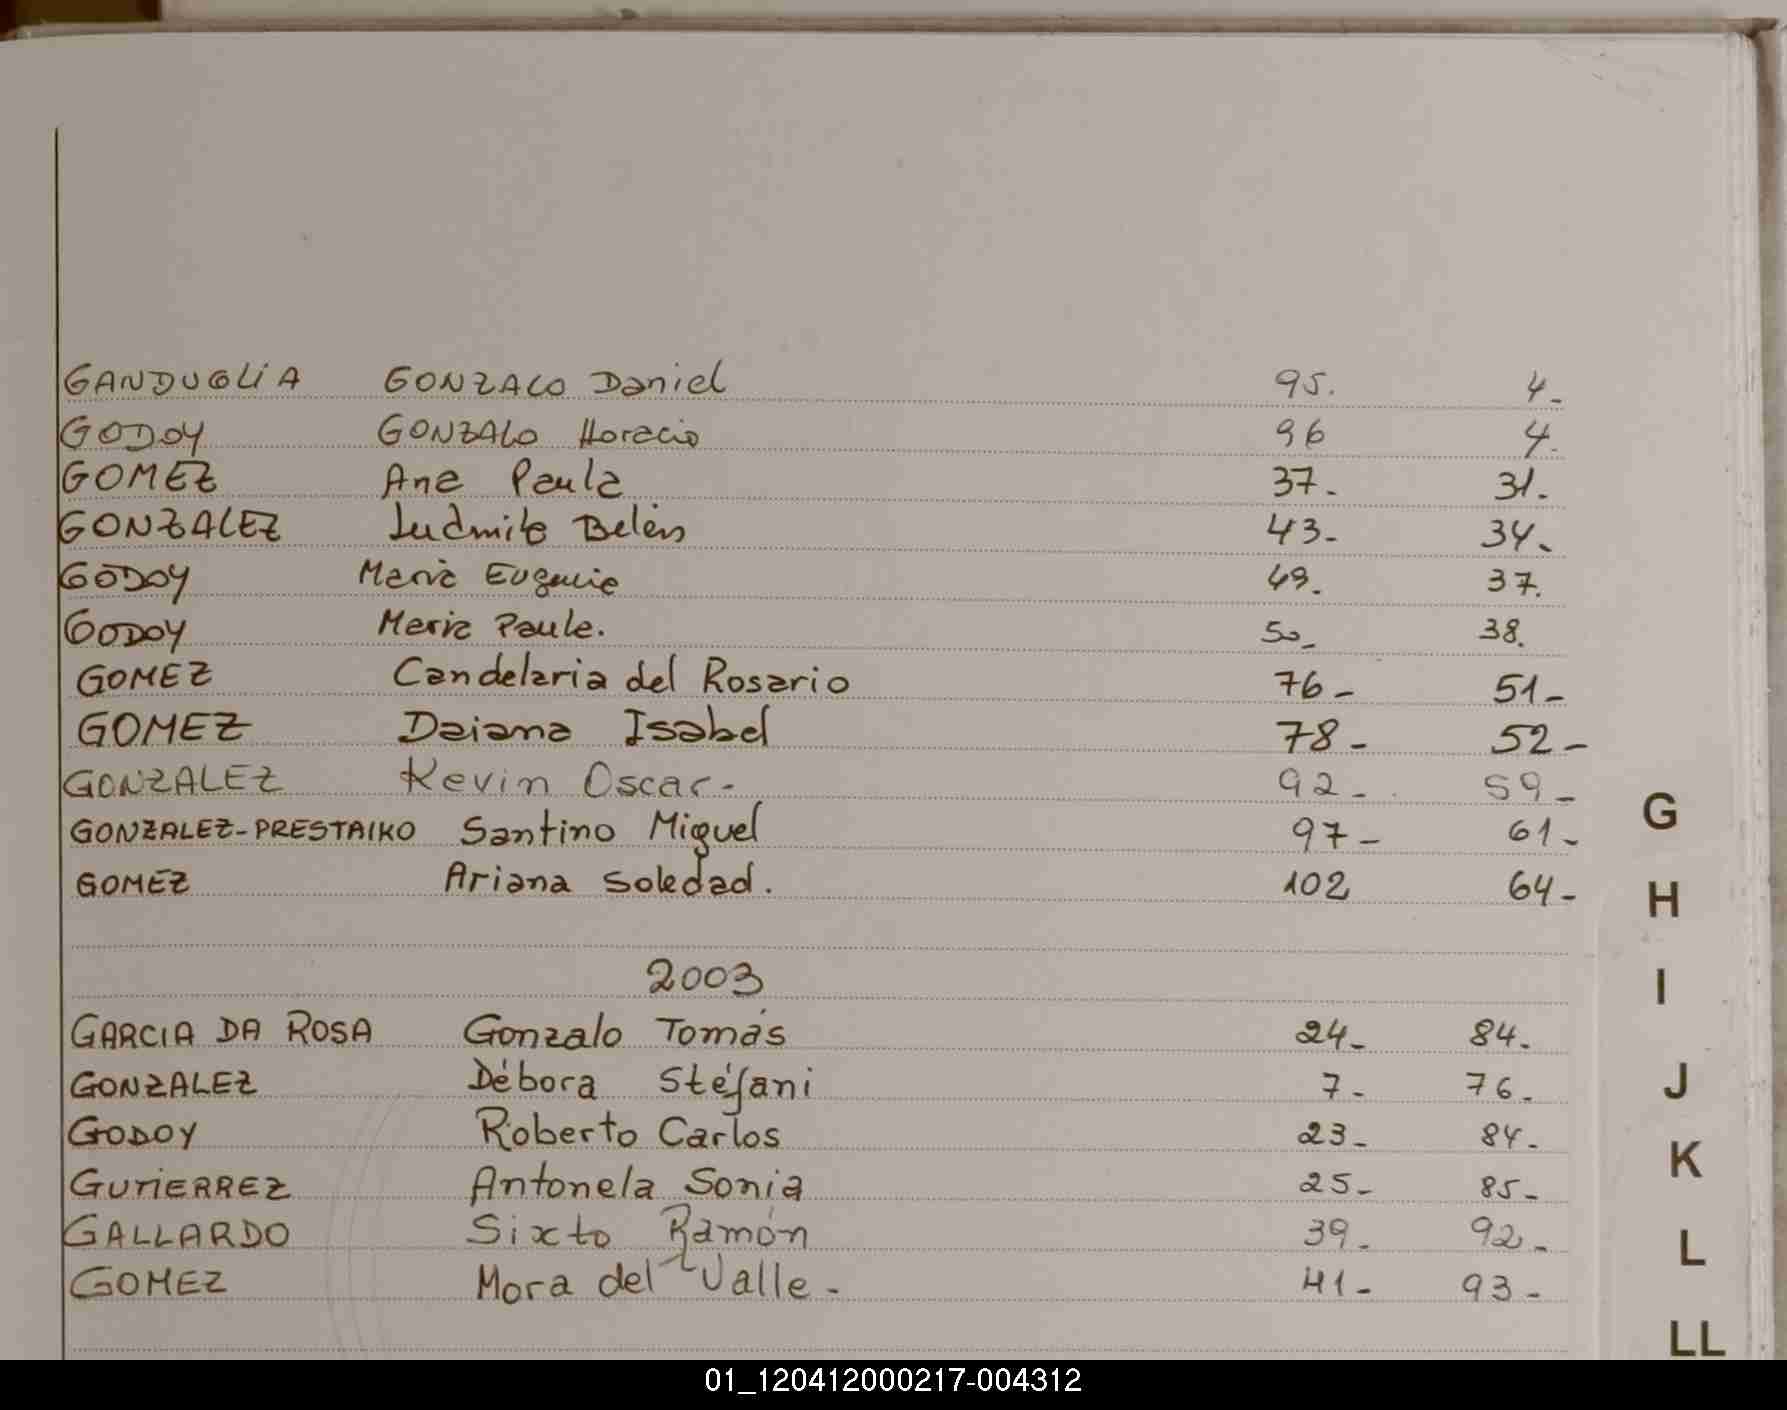 GANDUGLIA GONZALO Daniel 95. 4-
GODOY GONZALO Horacio 96 4.
GOMEZ Ana Paula 37- 31.
GONZALEZ Ludmila Belén 43- 34-
GODOY Maria Eugenia 49. 37.
GODOY Maria Paula. 50- 38.
GOMEZ Candelaria del Rosario 76- 51-
GOMEZ Daiana Isabel 78- 52-
GONZALEZ Kevin Oscar- 92- 59-
GONZALEZ-PRESTAIKO Santino Miguel 97- 61-
GOMEZ Ariana Soledad. 102 64-
2003
GARCIA DA ROSA Gonzalo Tomás 24- 84-
GONZALEZ Débora Stéfani 7- 76-
GODOY Roberto Carlos 23- 84-
GUTIERREZ Antonela Sonia 25- 85-
GALLARDO Sixto Ramón 39- 92-
GOMEZ Mora del Valle- 41- 93-
G
H
I
J
K
L
LL
01_120412000217-004312